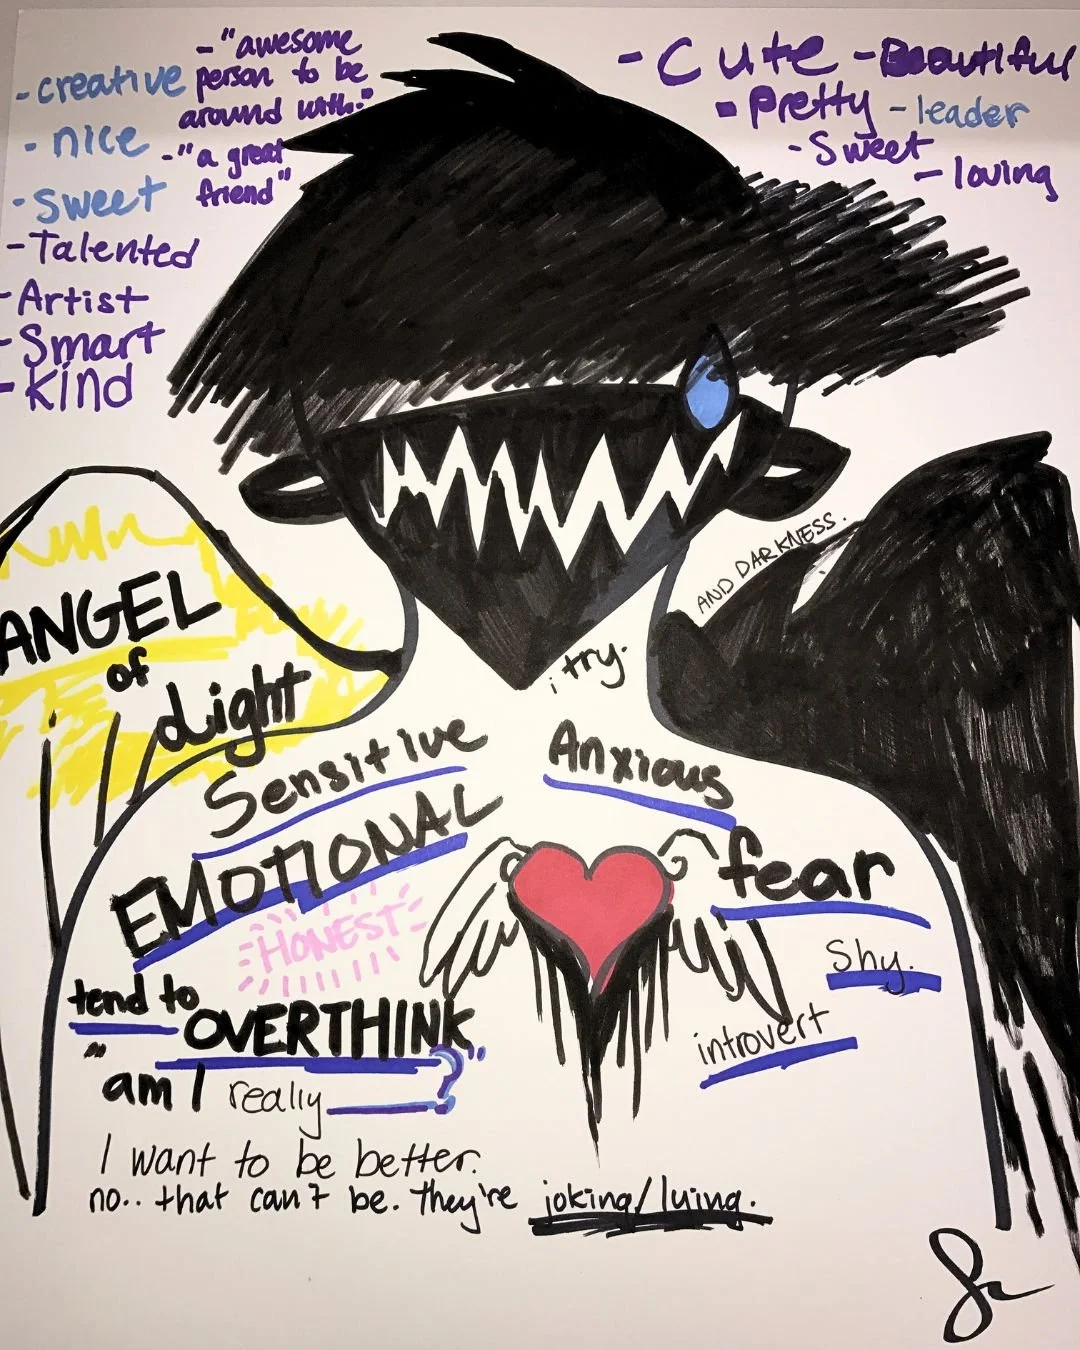 - creative
- nice
- sweet
- Talented
- Artist
- Smart
- Kind
- "awesome
person to be
around with."
- "a great
friend"
- Cute - Beautiful
- Pretty - leader
- Sweet
- loving
ANGEL
of
Light
AND DARKNESS.
i try.
Sensitive
EMOTIONAL
HONEST
tend to
OVERTHINK
"am I really ?"
I want to be better.
no.. that can't be. they're joking/lying.
Anxious
fear
Shy.
introvert